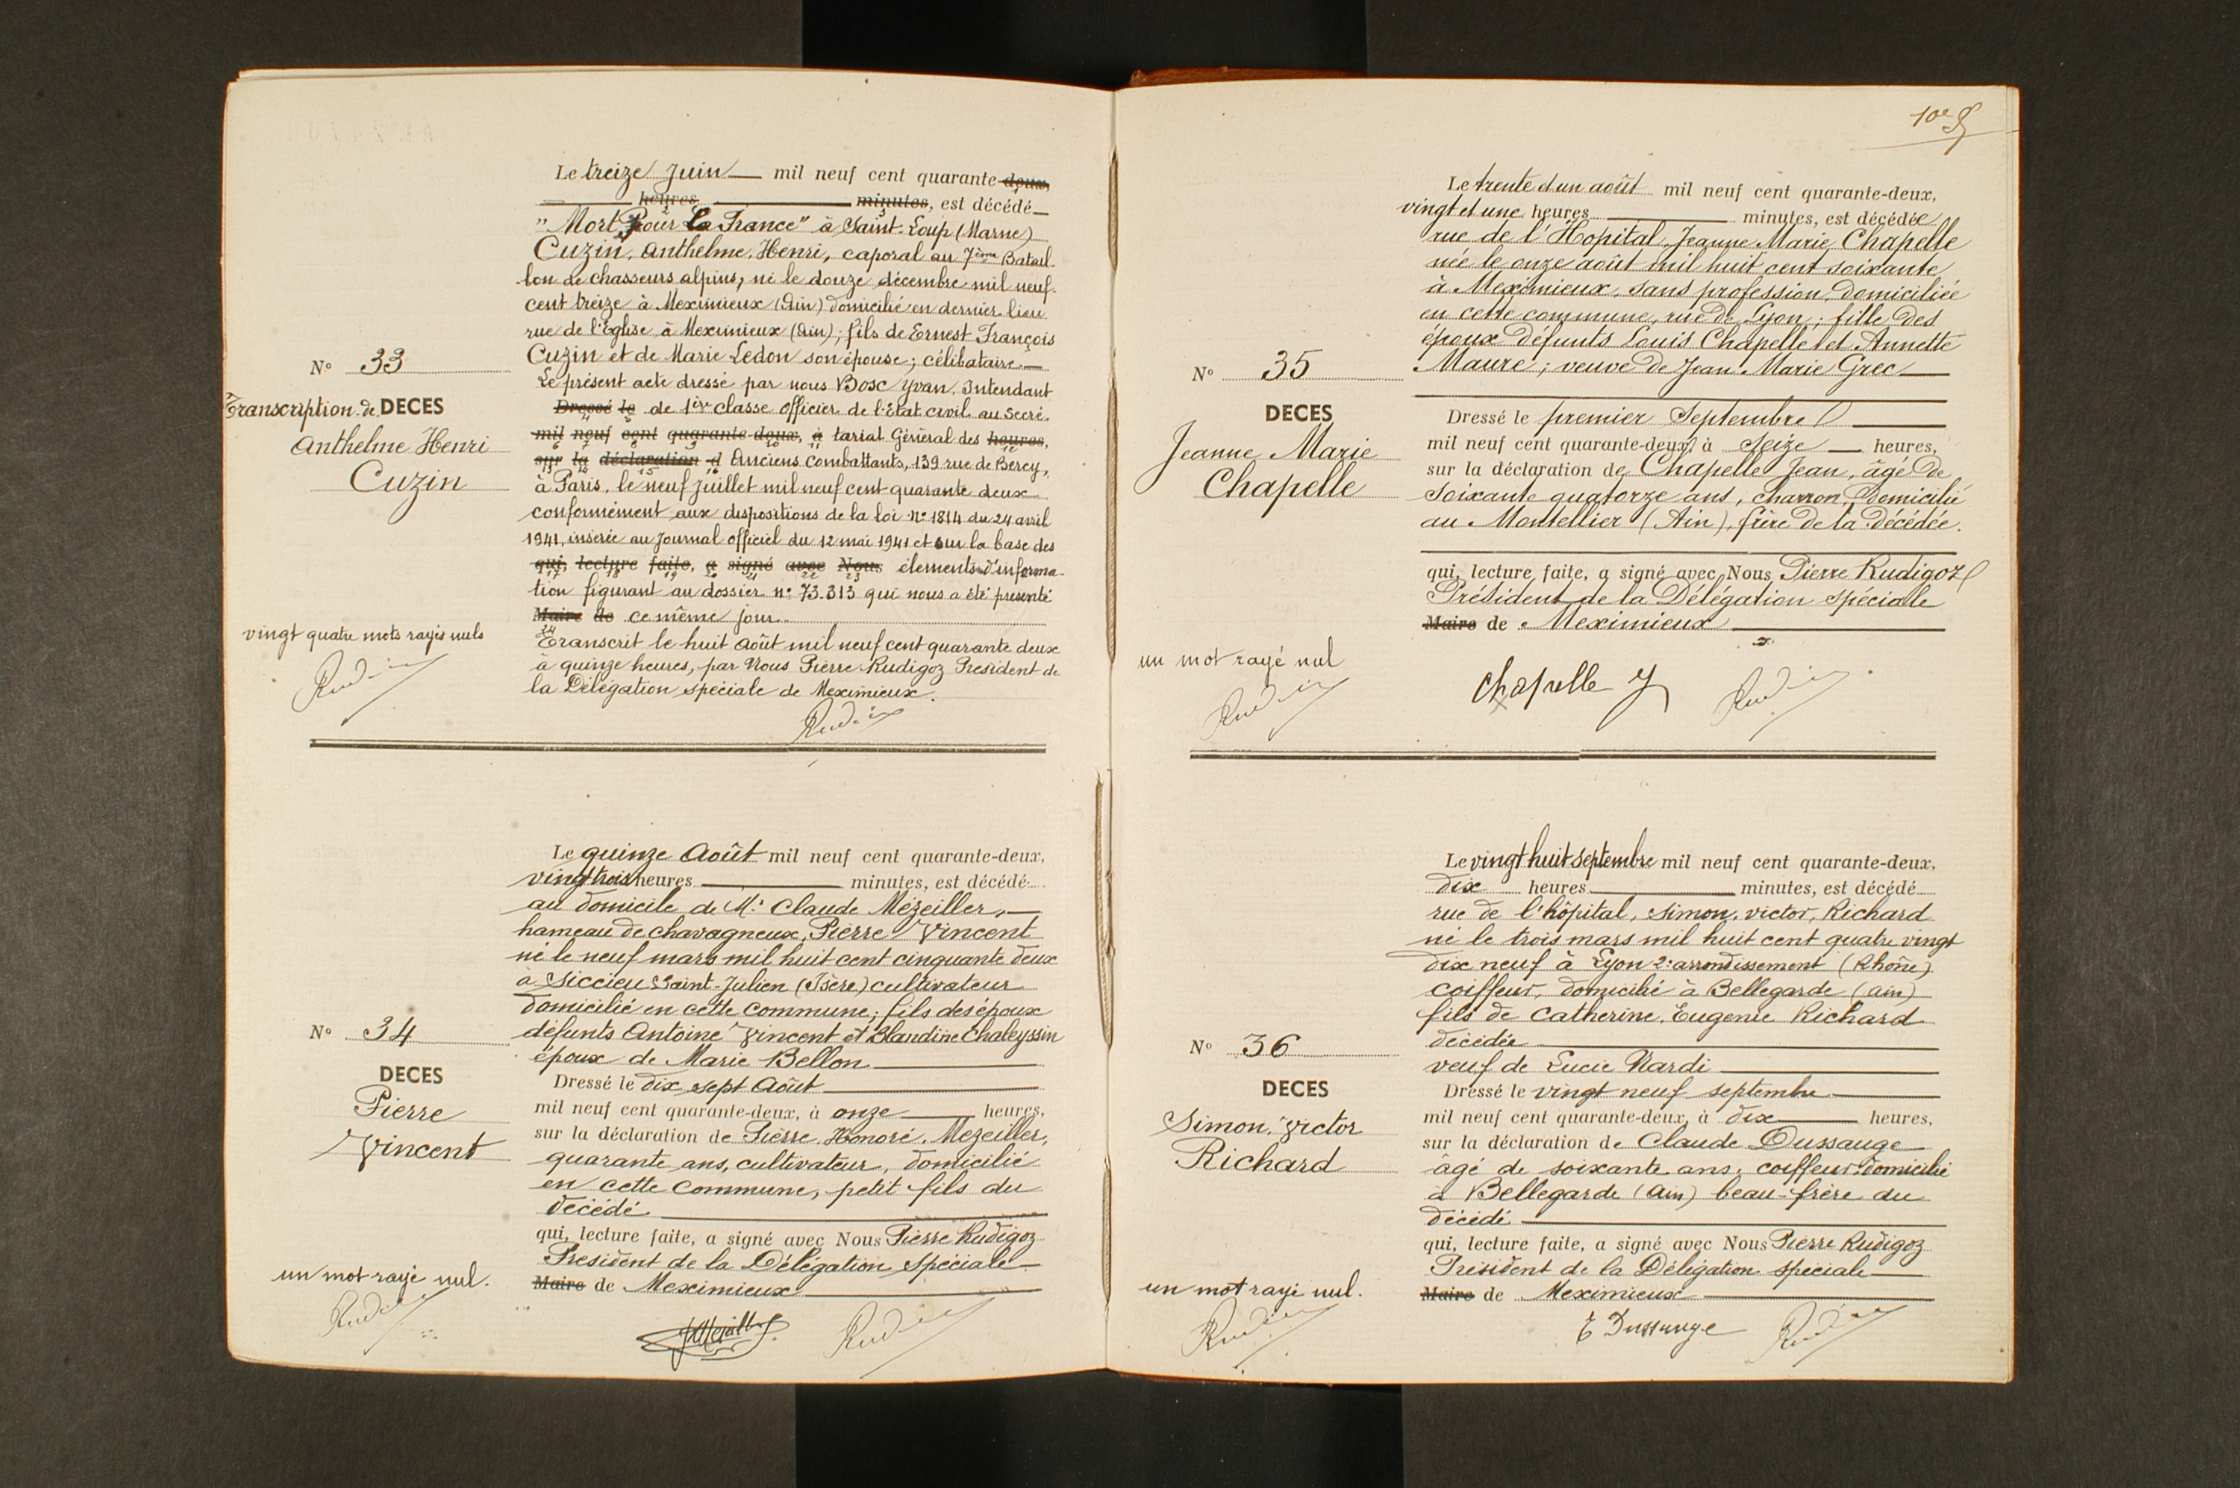 Le treize Juin mil neuf cent quarante-deux,
heures minutes, est décédé
"Mort Pour La France" à Saint-Loup (Marne)
Cuzin, Anthelme, Henri, caporal au 7ème Batail-
lon de chasseurs alpins, né le douze décembre mil neuf
cent treize à Meximieux (Ain) domicilié en dernier lieu
rue de l'Eglise à Meximieux (Ain), fils de Ernest François
Cuzin et de Marie Ledon son épouse; célibataire
N° 33
Transcription de DECES
Anthelme Henri
Cuzin
Le présent acte dressé par nous Bosc Yvan, Intendant
Dressé le de 1ère classe officier de l'Etat civil au Secré-
mil neuf cent quarante-deux, à tariat Général des heures,
sur la déclaration d Anciens Combattants, 139 rue de Bercy,
à Paris, le neuf Juillet mil neuf cent quarante deux
conformément aux dispositions de la loi n° 1814 du 24 avril
1941, insérée au Journal officiel du 12 mai 1941 et sur la base des
qui, lecture faite, a signé avec Nous élements d'informa-
tion figurant au dossier n° 73.313 qui nous a été présenté
Maire de ce même jour
Transcrit le huit Août mil neuf cent quarante deux
à quinze heures, par Nous Pierre Rudigoz Président de
la Délégation spéciale de Meximieux.
vingt quatre mots rayés nuls
Le quinze Août mil neuf cent quarante-deux,
vingt trois heures minutes, est décédé
au domicile de Mr Claude Mézeiller,
hameau de Chavagneux, Pierre Vincent
né le neuf mars mil huit cent cinquante deux
à Siccieu Saint-Julien (Isère) cultivateur
domicilié en cette commune, fils des époux
défunts Antoine Vincent et Blandine Chaleyssin
époux de Marie Bellon
N° 34
DECES
Pierre
Vincent
Dressé le dix sept Août
mil neuf cent quarante-deux, à onze heures,
sur la déclaration de Pierre Honoré Mezeiller,
quarante ans, cultivateur, domicilié
en cette commune, petit fils du
décédé
qui, lecture faite, a signé avec Nous Pierre Rudigoz
Président de la Délégation spéciale
Maire de Meximieux
un mot rayé nul.
Le trente et un août mil neuf cent quarante-deux,
vingt et une heures minutes, est décédée
rue de l'Hopital, Jeanne Marie Chapelle
née le onze août mil huit cent soixante
à Meximieux, sans profession, domiciliée
en cette commune, rue de Lyon; fille des
époux défunts Louis Chapelle et Annette
Maure; veuve de Jean Marie Grec
N° 35
DECES
Jeanne Marie
Chapelle
Dressé le premier Septembre
mil neuf cent quarante-deux, à Seize heures,
sur la déclaration de Chapelle Jean, âgé de
soixante quatorze ans, charron, domicilié
au Montellier (Ain), frère de la décédée.
qui, lecture faite, a signé avec Nous Pierre Rudigoz
Président de la Délégation spéciale
Maire de Meximieux
un mot rayé nul
Chapelle J
Le vingt huit septembre mil neuf cent quarante-deux,
dix heures minutes, est décédé
rue de l'hôpital, Simon, Victor, Richard
né le trois mars mil huit cent quatre vingt
dix neuf à Lyon 2e arrondissement (Rhône)
coiffeur, domicilié à Bellegarde (Ain)
fils de Catherine, Eugenie Richard
décédée
veuf de Lucie Nardi
N° 36
DECES
Simon, Victor
Richard
Dressé le vingt neuf septembre
mil neuf cent quarante-deux, à dix heures,
sur la déclaration de Claude Dussauge
âgé de soixante ans, coiffeur domicilié
à Bellegarde (Ain) beau-frère du
décédé
qui, lecture faite, a signé avec Nous Pierre Rudigoz
Président de la Délégation spéciale
Maire de Meximieux
un mot rayé nul.
Dussauge